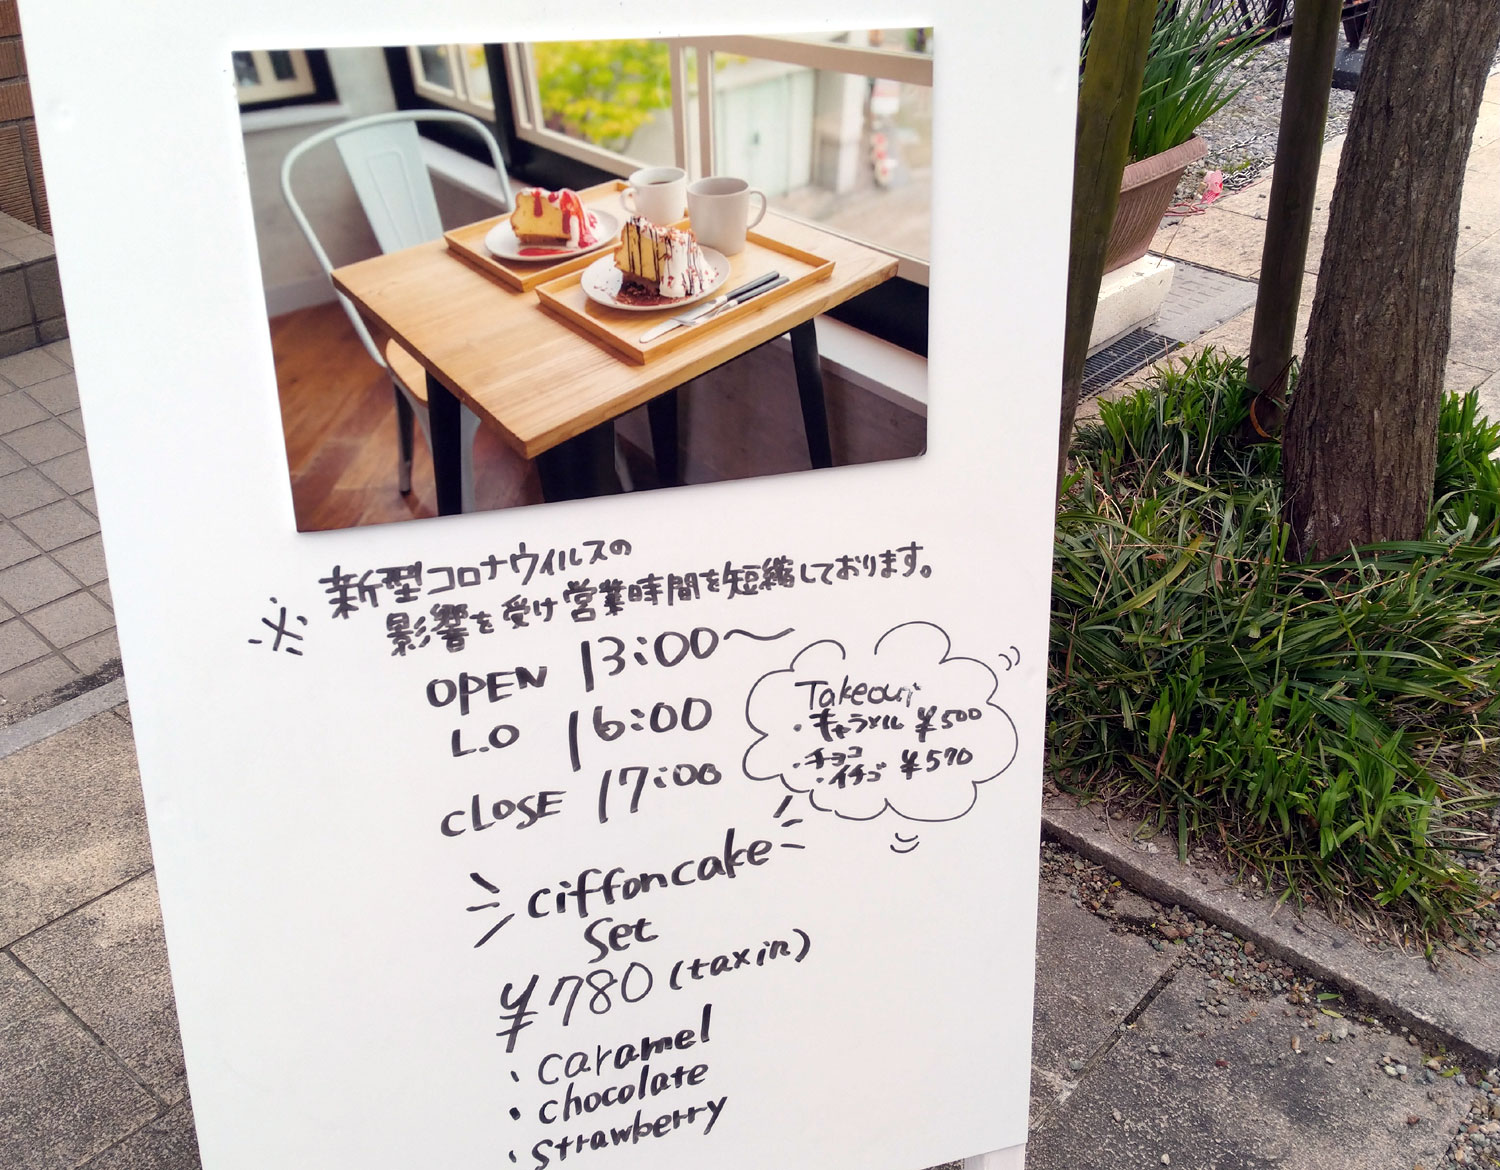 ※ 新型コロナウィルスの
影響を受け営業時間を短縮しております。
OPEN 13:00～
L.O 16:00
CLOSE 17:00
Takeout
・キャラメル ¥500
・チョコ
・イチゴ ¥570
ciffoncake
Set
¥780 (taxin)
・caramel
・chocolate
・Strawberry